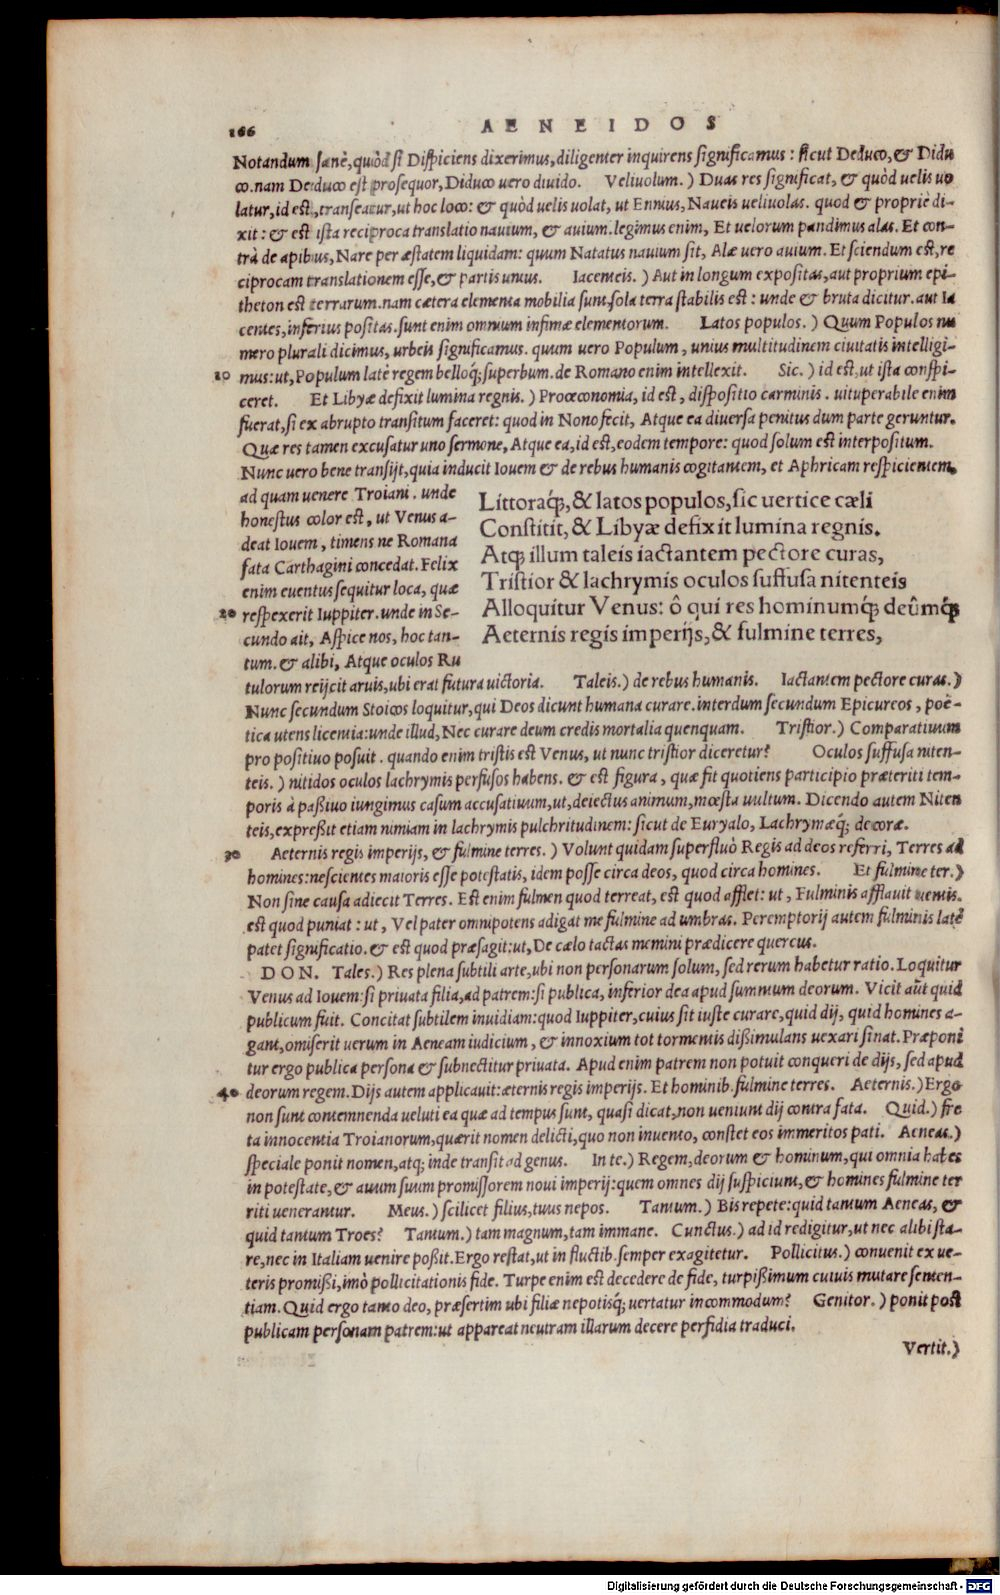 166 AENEIDOS
Notandum sanè, quòd si Dispiciens dixerimus, diligenter inquirens significamus: sicut Deduco, & Didu
co. nam Deduco est prosequor, Diduco uero diuido. Veliuolum.) Duas res significat, & quòd uelis uo
latur, id est, transeatur, ut hoc loco: & quòd uelis uolat, ut Ennius, Naueis ueliuolas. quod & propriè di-
xit: & est ista reciproca translatio nauium, & auium. legimus enim, Et uelorum pandimus alas. Et con-
trà de apibus, Nare per æstatem liquidam: quum Natatus nauium sit, Alæ uero auium. Et sciendum est, re
ciprocam translationem esse, & partis unius. Iacenteis.) Aut in longum expositas, aut proprium epi-
theton est terrarum. nam cætera elementa mobilia sunt, sola terra stabilis est: unde & bruta dicitur. aut Ia
centes, inferius positas. sunt enim omnium infimæ elementorum. Latos populos.) Quum Populos nu
mero plurali dicimus, urbeis significamus. quum uero Populum, unius multitudinem ciuitatis intelligi-
10 mus: ut, Populum latè regem belloq; superbum. de Romano enim intellexit. Sic.) id est, ut ista conspi-
ceret. Et Libyæ defixit lumina regnis.) Proœconomia, id est, dispositio carminis. uituperabile enim
fuerat, si ex abrupto transitum faceret: quod in Nono fecit, Atque ea diuersa penitus dum parte geruntur.
Quæ res tamen excusatur uno sermone, Atque ea, id est, eodem tempore: quod solum est interpositum.
Nunc uero bene transijt, quia inducit Iouem & de rebus humanis cogitantem, et Aphricam respicientem,
ad quam uenere Troiani. unde
honestus color est, ut Venus a-
deat Iouem, timens ne Romana
fata Carthagini concedat. Felix
enim euentus sequitur loca, quæ
20 respexerit Iuppiter. unde in Se-
cundo ait, Aspice nos, hoc tan-
tum. & alibi, Atque oculos Ru
Littoraq́;, & latos populos, sic uertice cæli
Constitit, & Libyæ defixit lumina regnis.
Atq; illum taleis iactantem pectore curas,
Tristior & lachrymis oculos suffusa nitenteis
Alloquitur Venus: ô qui res hominumq́; deûmq́;
Aeternis regis imperijs, & fulmine terres,
tulorum reijcit aruis, ubi erat futura uictoria. Taleis.) de rebus humanis. Iactantem pectore curas.)
Nunc secundum Stoicos loquitur, qui Deos dicunt humana curare. interdum secundum Epicureos, poë-
tica utens licentia: unde illud, Nec curare deum credis mortalia quenquam. Tristior.) Comparatiuum
pro positiuo posuit. quando enim tristis est Venus, ut nunc tristior diceretur? Oculos suffusa niten-
teis.) nitidos oculos lachrymis perfusos habens. & est figura, quæ fit quotiens participio præteriti tem-
poris à passiuo iungimus casum accusatiuum, ut, deiectus animum, mœsta uultum. Dicendo autem Niten
teis, expressit etiam nimiam in lachrymis pulchritudinem: sicut de Euryalo, Lachrymæq́; decoræ.
30 Aeternis regis imperijs, & fulmine terres.) Volunt quidam superfluò Regis ad deos referri, Terres ad
homines: nescientes maioris esse potestatis, idem posse circa deos, quod circa homines. Et fulmine ter.)
Non sine causa adiecit Terres. Est enim fulmen quod terreat, est quod afflet: ut, Fulminis afflauit uentis.
est quod puniat: ut, Vel pater omnipotens adigat me fulmine ad umbras. Peremptorij autem fulminis latè
patet significatio. & est quod præsagit: ut, De cælo tactas memini prædicere quercus.
DON. Tales.) Res plena subtili arte, ubi non personarum solum, sed rerum habetur ratio. Loquitur
Venus ad Iouem: si priuata filia, ad patrem: si publica, inferior dea apud summum deorum. Vicit aũt quid
publicum fuit. Concitat subtilem inuidiam: quod Iuppiter, cuius sit iuste curare, quid dij, quid homines a-
gant, omiserit uerum in Aeneam iudicium, & innoxium tot tormentis dissimulans uexari sinat. Præponi
tur ergo publica persona & subnectitur priuata. Apud enim patrem non potuit conqueri de dijs, sed apud
40 deorum regem. Dijs autem applicauit: æternis regis imperijs. Et hominib. fulmine terres. Aeternis.) Ergo
non sunt contemnenda ueluti ea quæ ad tempus sunt, quasi dicat, non ueniunt dij contra fata. Quid.) fre
ta innocentia Troianorum, quærit nomen delicti, quo non inuento, constet eos immeritos pati. Aeneas.)
speciale ponit nomen, atq; inde transit ad genus. In te.) Regem, deorum & hominum, qui omnia habes
in potestate, & auum suum promissorem noui imperij: quem omnes dij suspiciunt, & homines fulmine ter
riti uenerantur. Meus.) scilicet filius, tuus nepos. Tantum.) Bis repete: quid tantum Aeneas, &
quid tantum Troes? Tantum.) tam magnum, tam immane. Cunctus.) ad id redigitur, ut nec alibi sta-
re, nec in Italiam uenire possit. Ergo restat, ut in fluctib. semper exagitetur. Pollicitus.) conuenit ex ue-
teris promissi, imò pollicitationis fide. Turpe enim est decedere de fide, turpissimum cuiuis mutare senten-
tiam. Quid ergo tanto deo, præsertim ubi filiæ nepotisq́; uertatur incommodum? Genitor.) ponit post
publicam personam patrem: ut appareat neutram illarum decere perfidia traduci.
Vertit.)
Digitalisierung gefördert durch die Deutsche Forschungsgemeinschaft - DFG